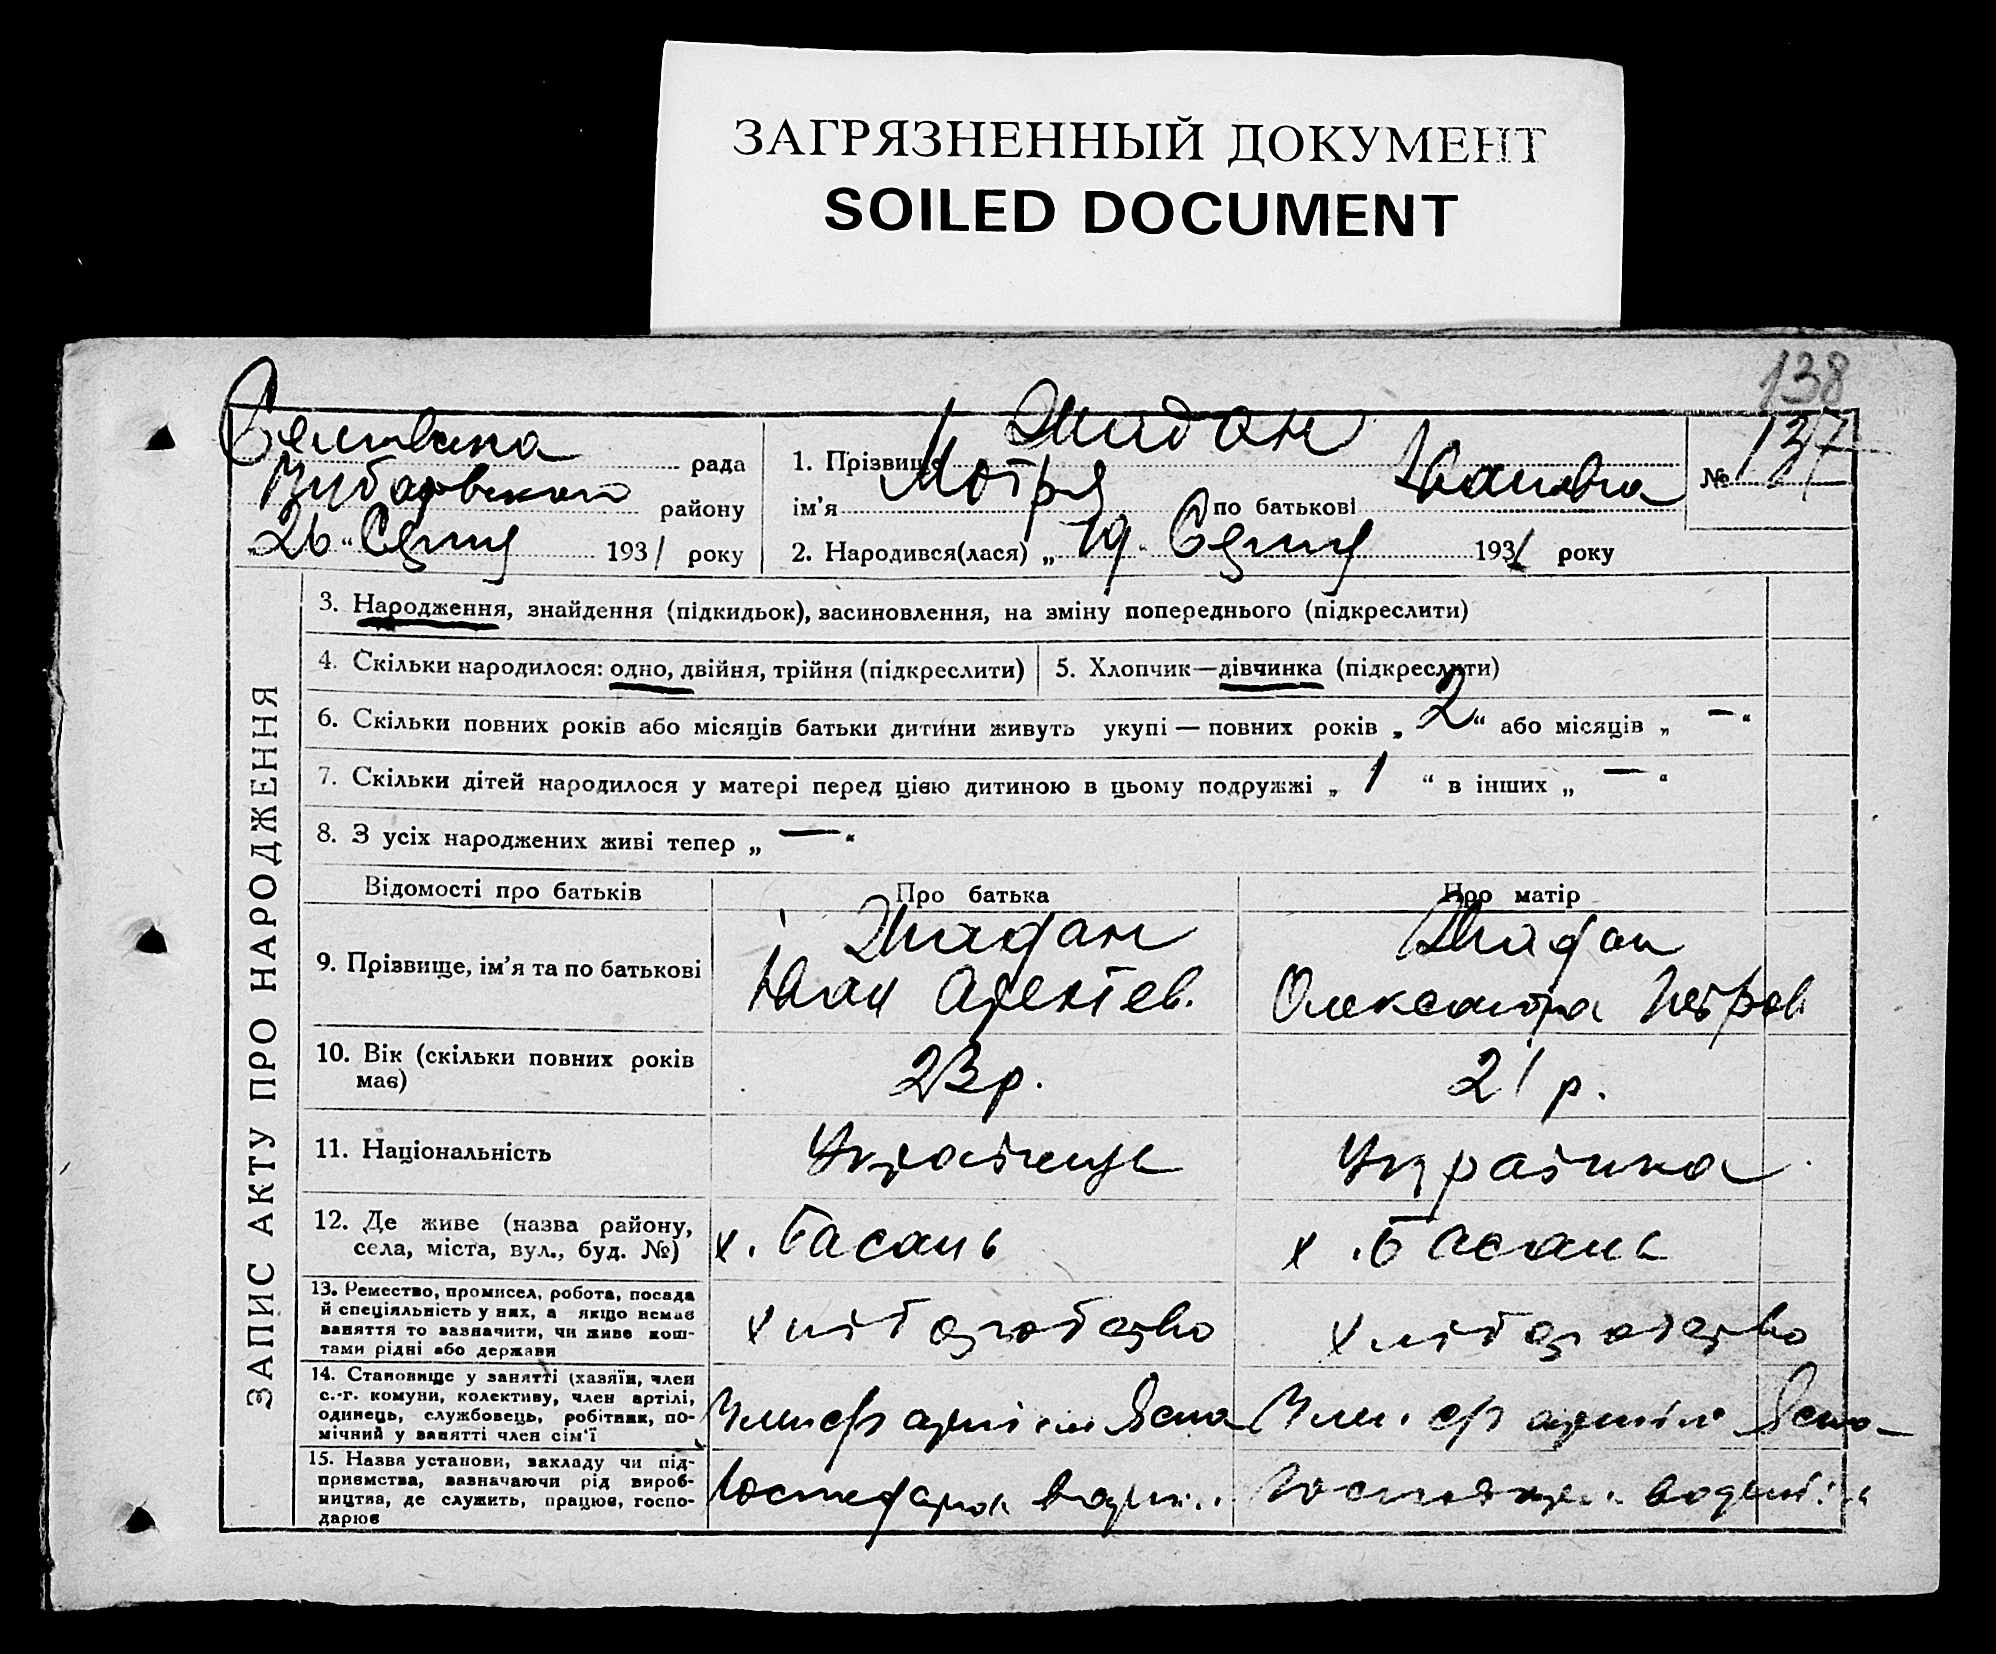 ЗАГРЯЗНЕННЫЙ ДОКУМЕНТ
SOILED DOCUMENT
138
рада
району
„26“ Серпня 1931 року
1. Прізвище Жадан
ім'я Мотря по батькові Іванівна
2. Народився(лася) „19“ Серпня 1931 року
№ 137
ЗАПИС АКТУ ПРО НАРОДЖЕННЯ
3. Народження, знайдення (підкидьок), засиновлення, на зміну попереднього (підкреслити)
4. Скільки народилося: одно, двійня, трійня (підкреслити)
5. Хлопчик—дівчинка (підкреслити)
6. Скільки повних років або місяців батьки дитини живуть укупі — повних років „2“ або місяців „—“
7. Скільки дітей народилося у матері перед цією дитиною в цьому подружжі „1“ в інших „—“
8. З усіх народжених живі тепер „—“
Відомості про батьків
Про батька
Про матір
9. Прізвище, ім'я та по батькові
Жадан
Іван
Жадан
Олександра Петров
10. Вік (скільки повних років
має)
23 р.
21 р.
11. Національність
Українець
Українка
12. Де живе (назва району,
села, міста, вул., буд. №)
х. Басань
х. Басань
13. Ремество, промисел, робота, посада
й спеціяльність у них, а якщо немає
заняття то зазначити, чи живе кош-
тами рідні або держави
хліборобство
хліборобство
14. Становище у занятті (хазяїн, член
с.-г. комуни, колективу, член артілі,
одинець, службовець, робітник, по-
мічний у занятті член сім'ї
15. Назва установи, закладу чи під-
приємства, зазначаючи рід вироб-
ництва, де служить, працює, госпо-
дарює